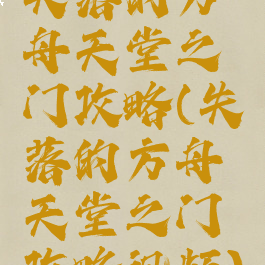 失落的方
舟天堂之
门攻略(失
落的方舟
天堂之门
攻略视频)